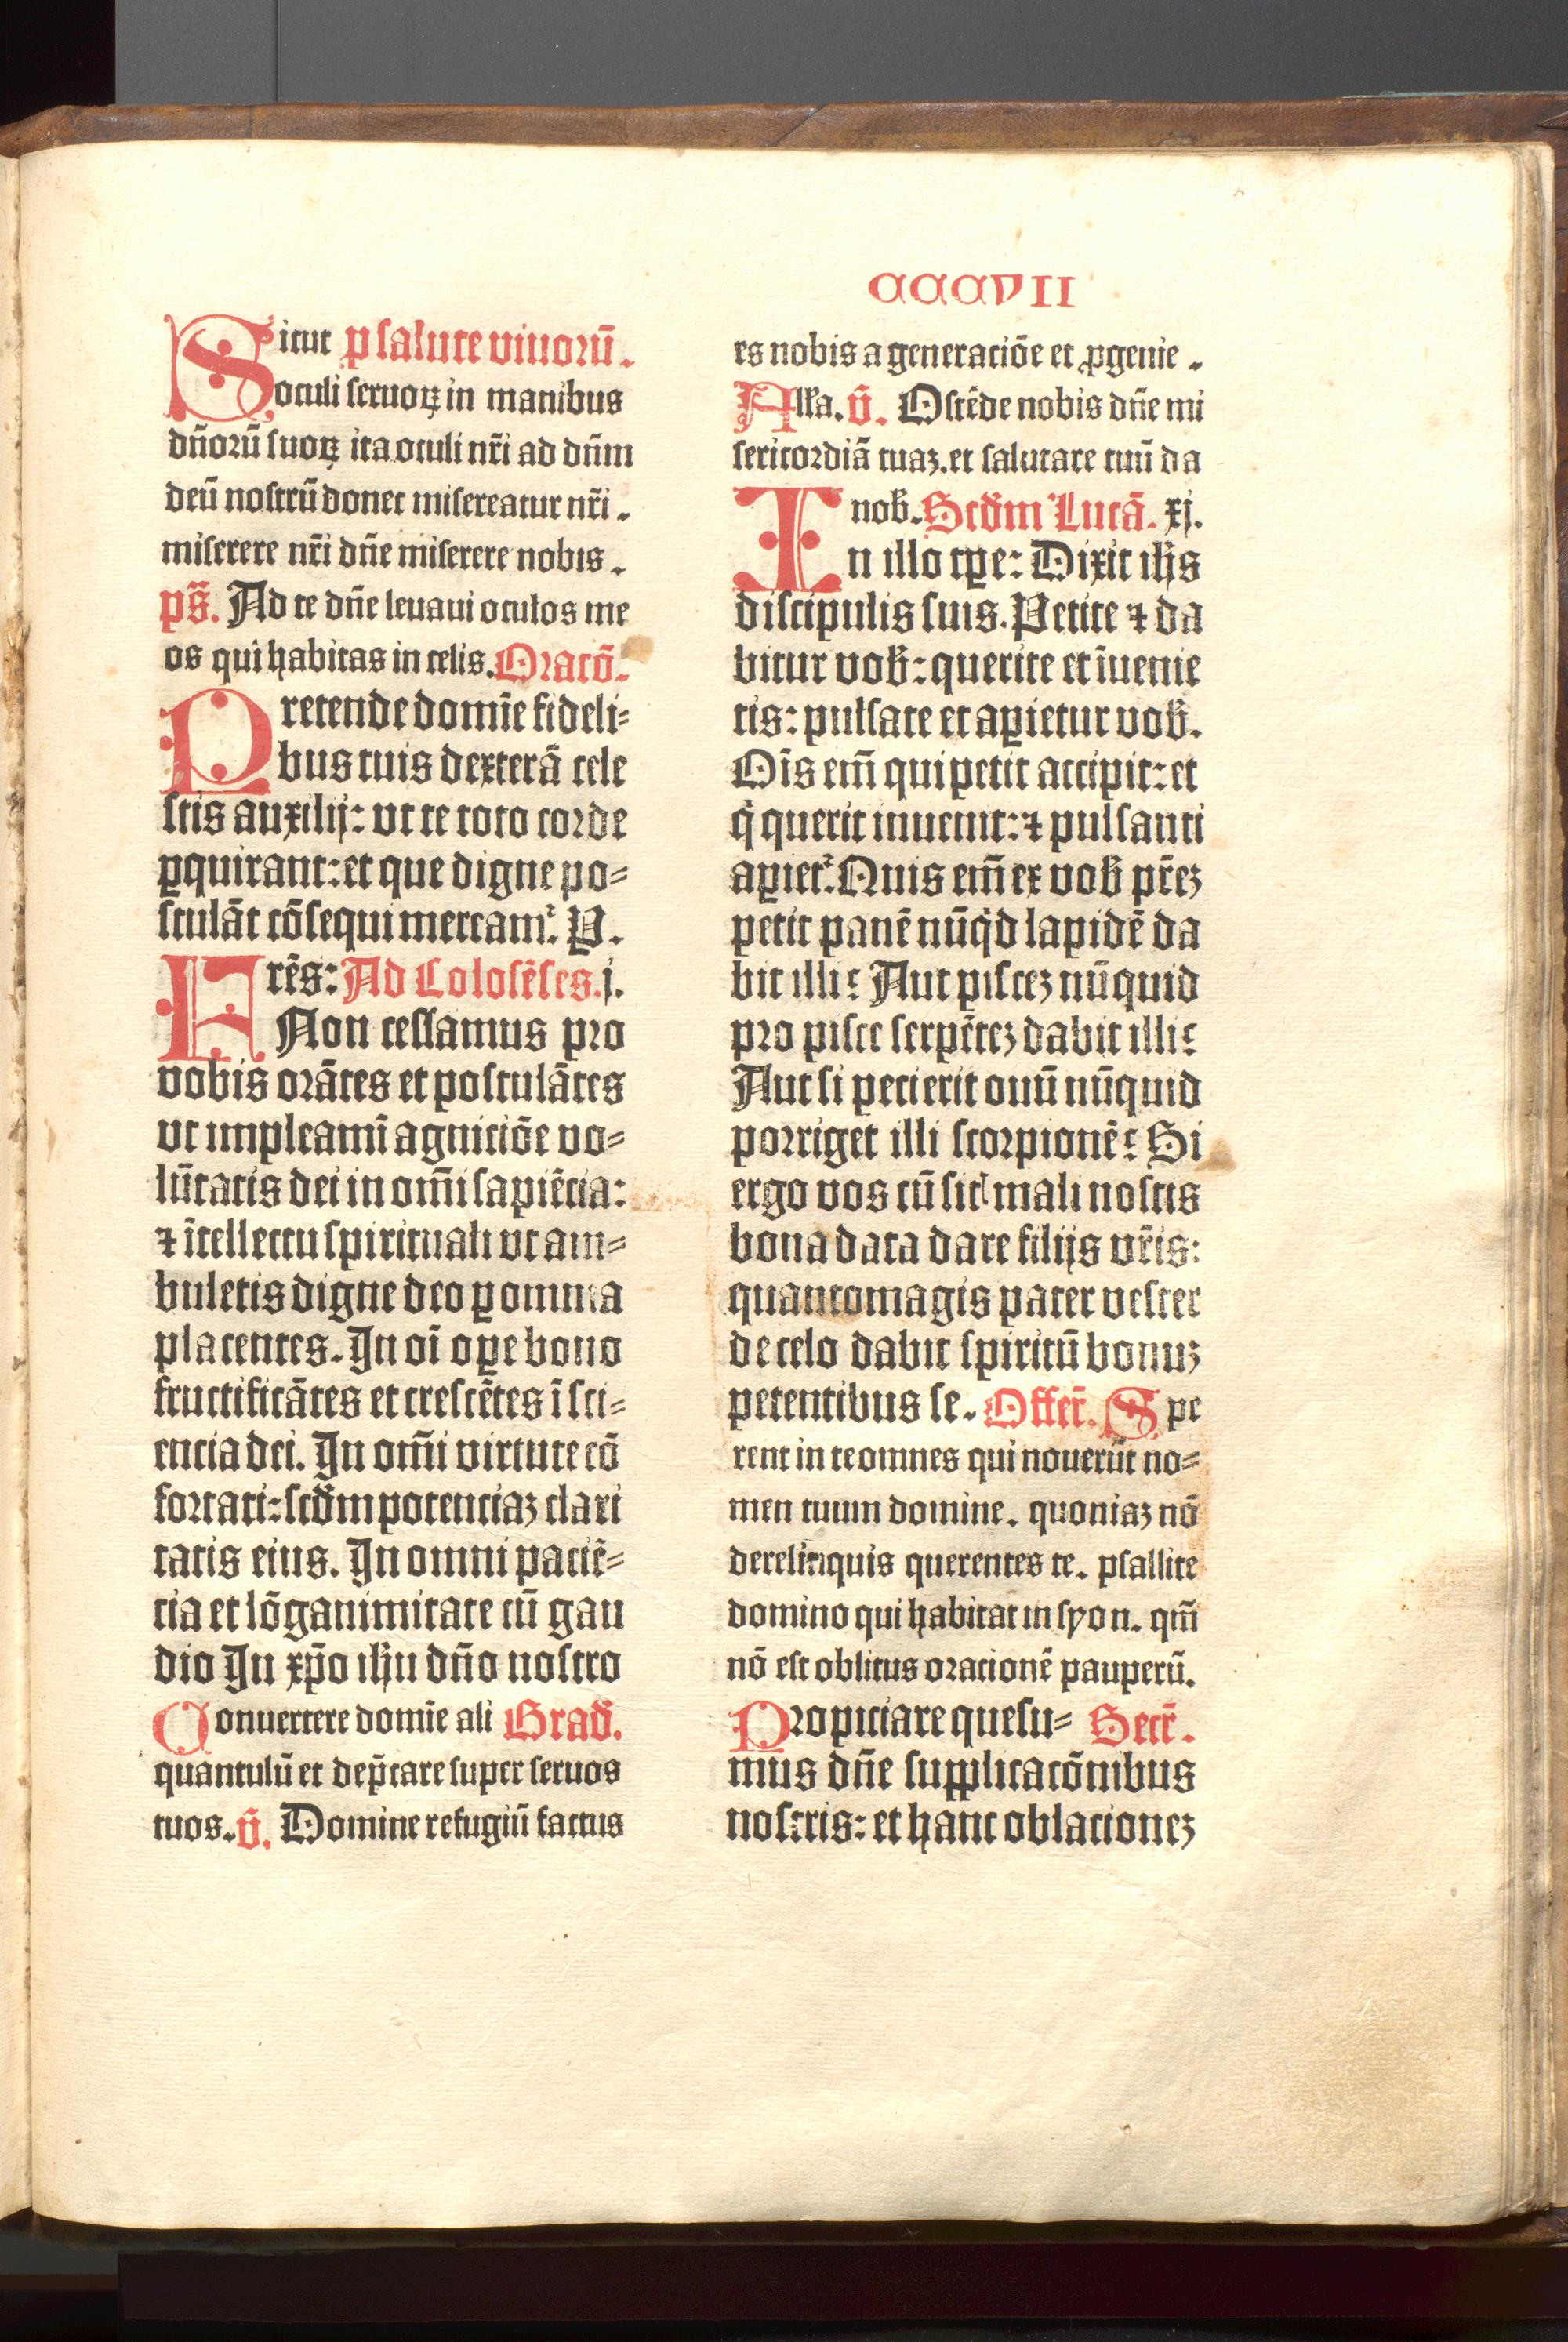 CCCVII
Sicut ꝑ salute viuorū.
oculi seruoꝝ in manibus
dn̄orū suoꝝ ita oculi nr̄i ad dn̄m
deū nostrū donec misereatur nr̄i.
miserere nr̄i dn̄e miserere nobis.
ps̄. Ad te dn̄e leuaui oculos me
os qui habitas in celis. Oracō.
Pretende domīe fideli⸗
bus tuis dexterā cele
stis auxilij: vt te toto corde
ꝑquirant: et que digne po⸗
stulāt cōsequi mereamᷣ. P.
Frēs: Ad Colosēses. j.
Non cessamus pro
vobis orātes et postulātes
vt impleamī agniciōe vo⸗
lūtatis dei in om̄i sapiēcia:
⁊ ītellectu spirituali vt am⸗
buletis digne deo ꝑ omnia
placentes. In oī oꝑe bono
fructificātes et crescētes ī sci⸗
encia dei. In om̄i virtute cō
fortati: scd̄m potenciaz clari
tatis eius. In omni paciē⸗
cia et lōganimitate cū gau
dio In xp̄o ih̄u dn̄o nostro
Conuertere domīe ali Grad̄.
quantulū et dep̄care super seruos
tuos. v̄. Domine refugiū factus
es nobis a generatiōe et ꝓgenie.
All̄a. v̄. Ostēde nobis dn̄e mi
sericordiā tuaz. et salutare tuū da
nob̄. Scd̄m Lucā. xj.
In illo tꝑe: Dixit ih̄s
discipulis suis. Petite ⁊ da
bitur vob̄: querite et īuenie
tis: pulsate et aꝑietur vob̄.
Oīs em̄ qui petit accipit: et
q̇ querit inuenit: ⁊ pulsanti
aꝑietᷣ. Quis em̄ ex vob̄ pr̄ez
petit panē nūq̇d lapidē da
bit illi? Aut piscez nūquid
pro pisce serpētez dabit illi?
Aut si pecierit ouū nūquid
porriget illi scorpionē? Si
ergo vos cū sitꝭ mali nostis
bona data dare filijs vr̄is:
quantomagis pater vester
de celo dabit spiritū bonuz
petentibus se. Offer̄. Spe
rent in te omnes qui nouerūt no⸗
men tuum domine. quoniaz nō
derelinquis querentes te. psallite
domino qui habitat in syon. qm̄
nō est oblitus oracionē pauperū.
Propiciare quesu⸗ Secr̄.
mus dn̄e supplicacōnibus
nostris: et hanc oblacionez